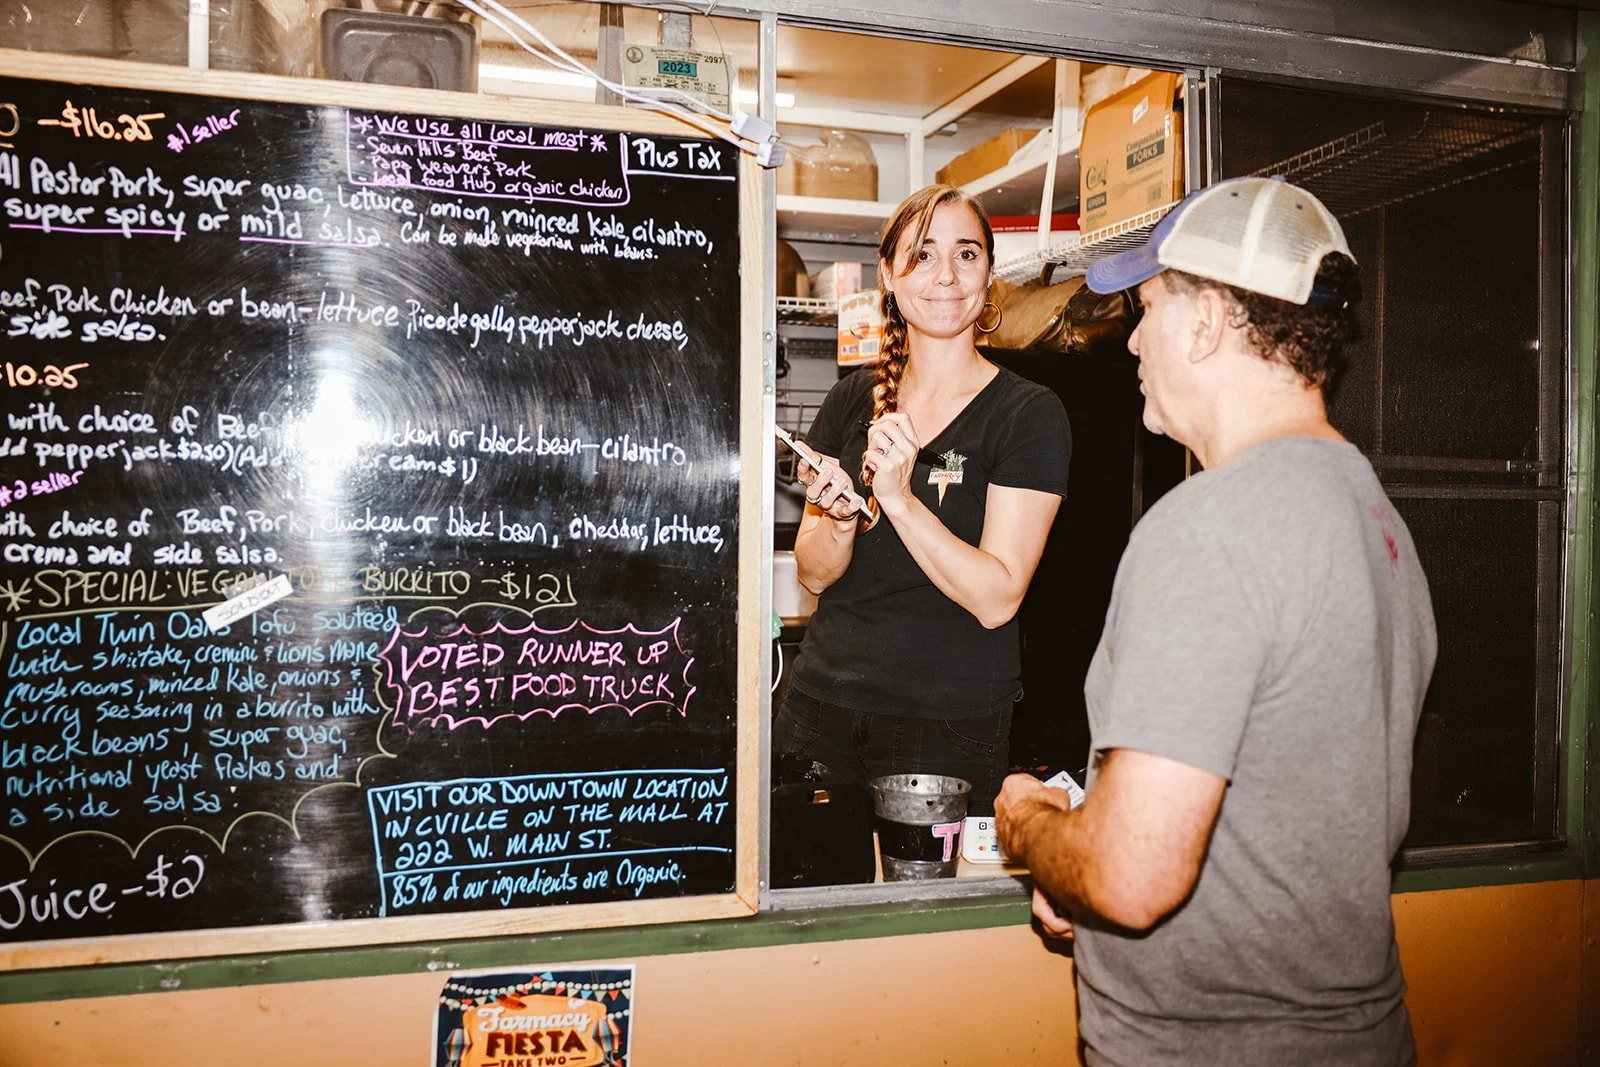 2023
2997
O -$16.25
#1 seller
*We use all local meat*
- Seven Hills Beef
- Papa Weavers Pork
- Local food Hub organic chicken
Plus Tax
Al Pastor Pork, super guac, lettuce, onion, minced kale, cilantro,
super spicy or mild salsa. Can be made vegetarian with beans.
eef, Pork, Chicken or bean-lettuce, Pico de gallo, pepperjack cheese,
side salsa.
10.25
with choice of Beef, icken or black bean-cilantro,
dd pepperjack $2.50)(Add cream $1)
#2 seller
ith choice of Beef, Pork, Chicken or black bean, cheddar, lettuce,
crema and side salsa.
*SPECIAL: VEGAN TOFU BURRITO -$12
SOLD OUT
Local Twin Oaks Tofu sauteed
with shiitake, cremini & lion's mane
mushrooms, minced kale, onions &
curry seasoning in a burrito with
black beans, super guac,
nutritional yeast flakes and
a side salsa.
VOTED RUNNER UP
BEST FOOD TRUCK
VISIT OUR DOWNTOWN LOCATION
IN CVILLE ON THE MALL AT
222 W. MAIN ST.
85% of our ingredients are Organic.
Juice -$2
Compostable
FORKS
GREEN
FARMACY
T
Farmacy
FIESTA
TAKE TWO